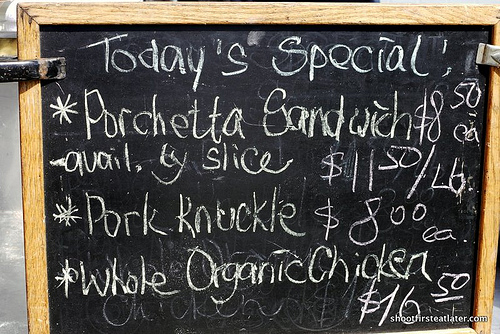 Today's Special!
*Porchetta Sandwich $8 50 ea
-avail. by slice $11 50/Lb.
*Pork Knuckle $ 8 00 ea.
*Whole Organic Chicken
$16 50
shootfirsteatlater.com